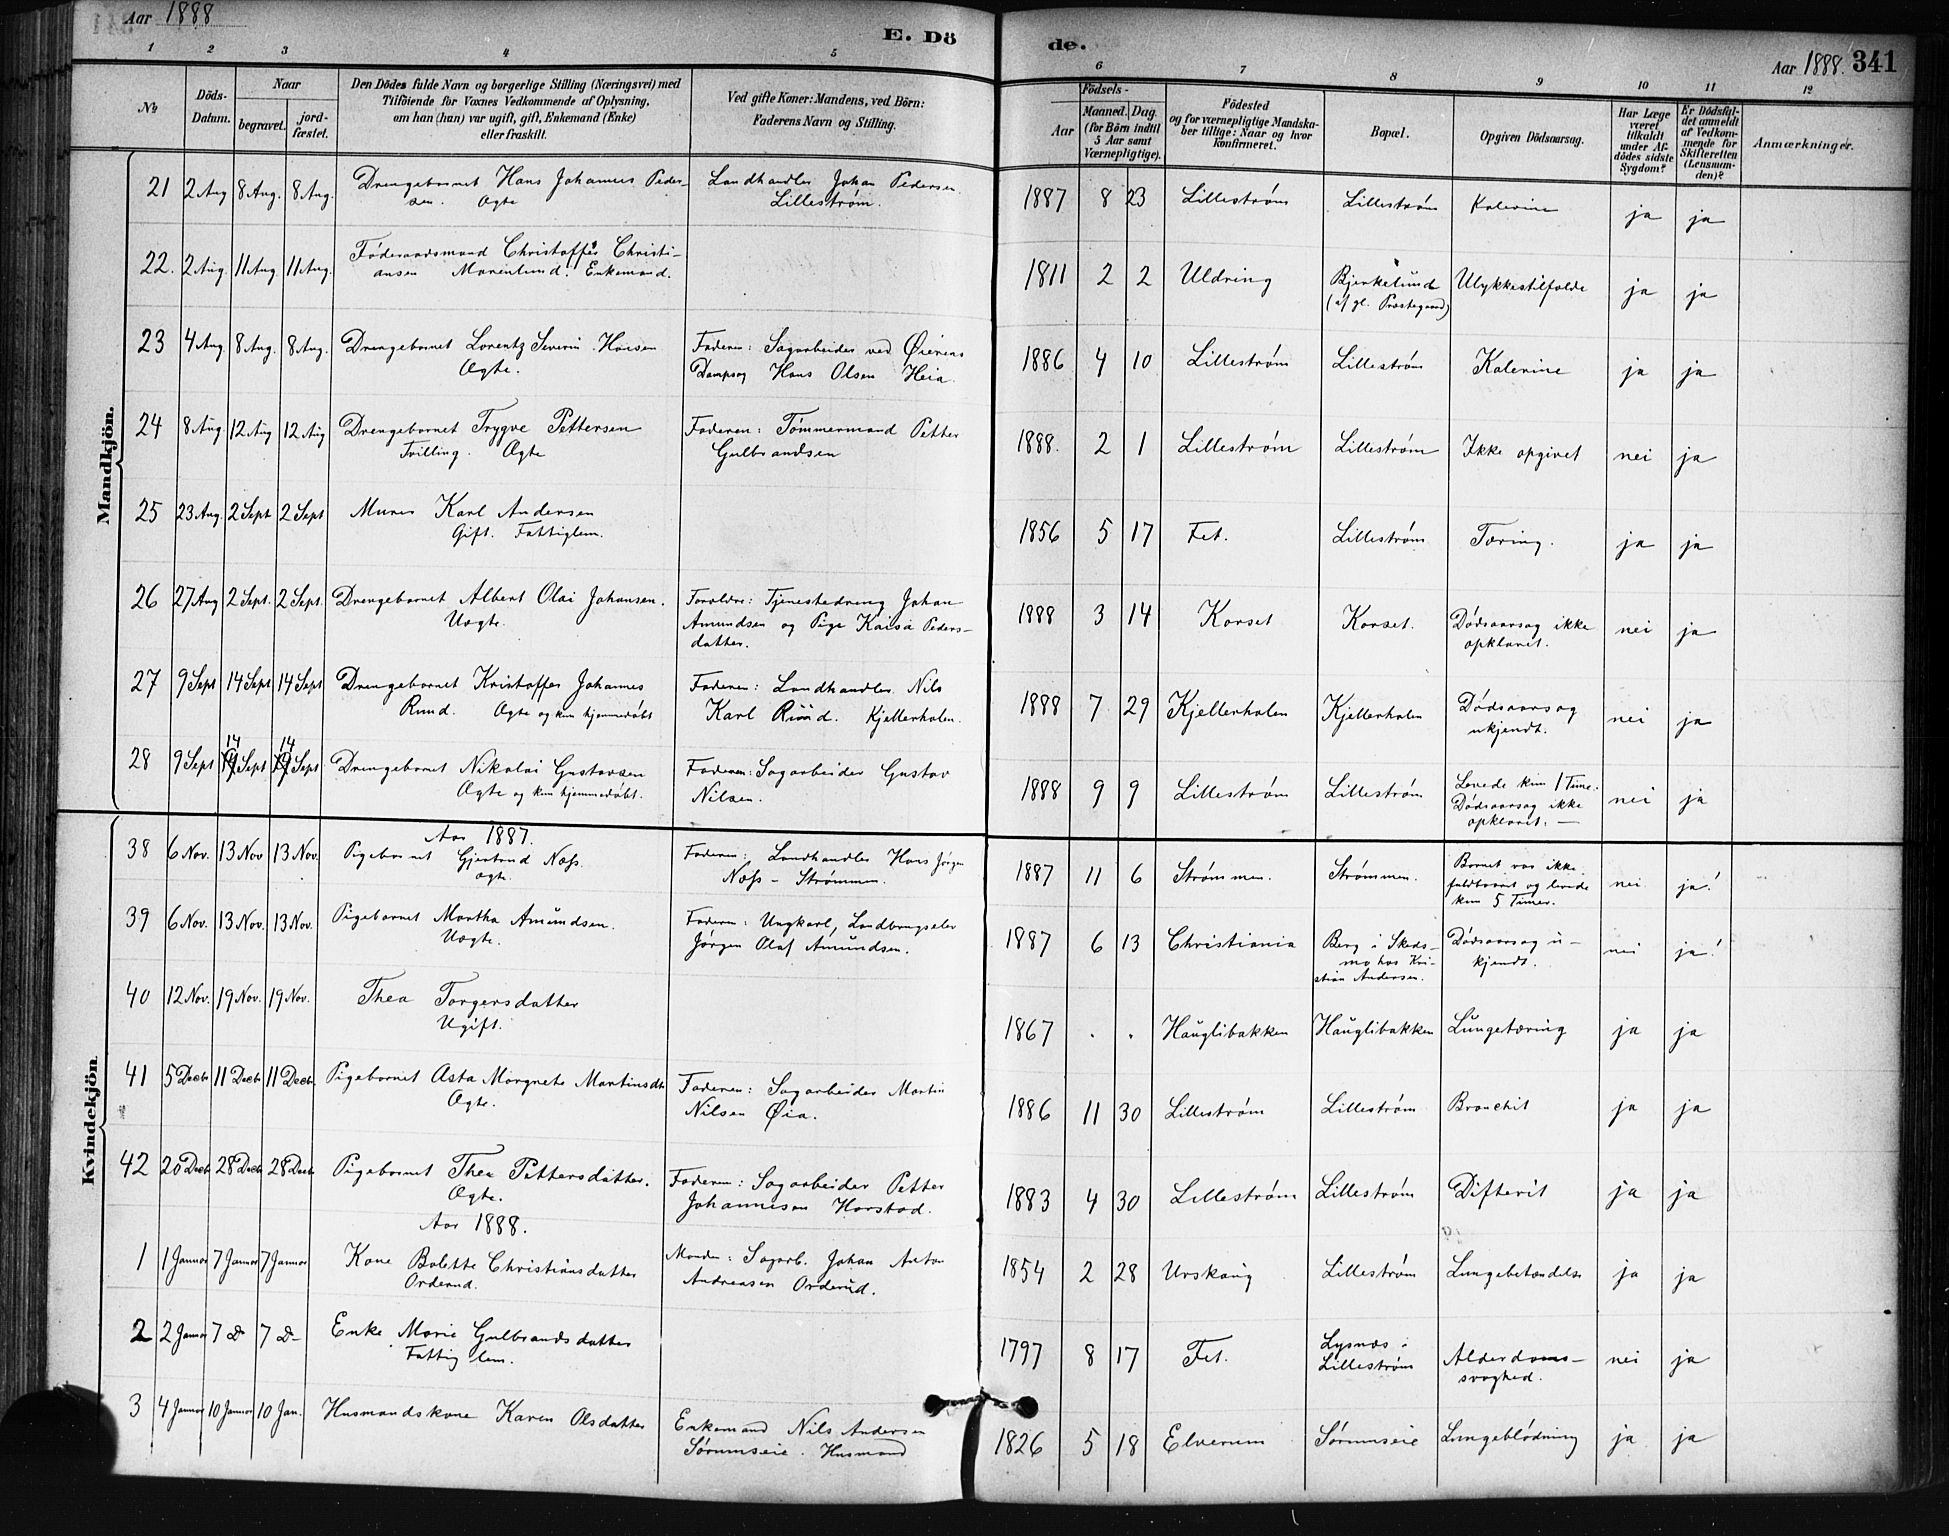 Aar 1888
E. Dö
de.
Aar 1888. 341
1 2 3 4 5 6 7 8 9 10 11 12
No
Döds-Datum.
Naar
begravet.
jord-fæstet.
Den Dödes fulde Navn og borgerlige Stilling (Næringsvei) med
Tilföiende for Voxnes Vedkommende af Oplysning,
om han (hun) var ugift, gift, Enkemand (Enke)
eller fraskilt.
Ved gifte Koner: Mandens, ved Börn:
Faderens Navn og Stilling.
Födsels-
Aar
Maaned. Dag.
(for Börn indtil
5 Aar samt
Værnepligtige).
Födested
og for værnepligtige Mandska-
ber tillige: Naar og hvor
konfirmeret.
Bopæl.
Opgiven Dödsaarsag.
Har Læge
været
tilkaldt
under Af-
dödes sidste
Sygdom?
Er Dödsfal-
det anmeldt
af Vedkom-
mende for
Skifteretten
(Lensman-
den)?
Anmærkninger.
Mandkjön.
21 2 Aug 8 Aug. 8 Aug. Drengebarnet Hans Johannes Peder- Landhandler Johan Pedersen. 1887 8 23 Lillestrøm Lillestrøm Kolerine ja ja
sen. Ægte Lillestrøm.
22. 2 Aug. 11 Aug. 11 Aug. Føderaadsmand Christoffer Christi- 1811 2 2 Uldring Bjerkelund Ulykkestilfælde ja ja
ansen Morenlund. Enkemand. (af gl. Præstegaard)
23 4 Aug 8 Aug. 8 Aug. Drengebarnet Lorentz Severin Hansen Faderen: Sagarbeider ved Øierens 1886 4 10 Lillestrøm Lillestrøm Kolerine ja ja
Ægte. Dampsag Hans Olsen Heia.
24 8 Aug. 12 Aug 12 Aug Drengebarnet Trygve Pettersen Faderen: Tømmermand Petter 1888. 2 1 Lillestrøm Lillestrøm Ikke opgivet nei ja
Tvilling. Ægte Gulbrandsen
25 23 Aug. 2 Sept 2 Sept Murer Karl Andersen 1856 5 17 Fet. Lillestrøm Tæring. ja ja
Gift. Fattiglem.
26 27 Aug 2 Sept. 2 Sept. Drengebarnet Albert Olai Johansen. Forældre: Tjenestedreng Johan 1888 3 14 Korset Korset. Dødsaarsag ikke nei ja
Uægte. Amundsen og Pige Kaisa Peders- opklaret.
datter.
27 9 Sept 14 Sept 14 Sept Drengebarnet Kristoffer Johannes Faderen: Landhandler Nils 1888 7 29 Kjellerholen Kjellerholen Dødsaarsag nei ja
Ruud. Ægte og kun hjemmedøbt Karl Ruud. Kjellerholen. ukjendt.
28 9 Sept 14 Sept 14 Sept Drengebarnet Nikolai Gustavsen Faderen: Sagarbeider Gustav 1888 9 9 Lillestrøm Lillestrøm Levede kun 1 Time. nei ja
Ægte og kun hjemmedøbt. Nilsen. Dødsaarsag ikke
opklaret. —
Kvindekjön
Aar 1887.
38 6 Nov. 13 Nov 13 Nov. Pigebarnet Gjertrud Næss. Faderen: Landhandler Hans Jørgen 1887 11 6 Strømmen. Strømmen. Barnet var ikke nei ja!
ægte. Næss - Strømmen. fuldbaaret og levede
kun 5 Timer.
39 6 Nov. 13 Nov. 13 Nov. Pigebarnet Martha Amundsen. Faderen: Ungkarl, Landbrugselev 1887 6 13 Christiania Berg i Skeds- Dødsaarsag u- nei ja!
Uægte. Jørgen Olaf Amundsen. mo hos Kri- kjendt.
stian Andersen.
40 12 Nov. 19 Nov. 19 Nov. Thea Torgersdatter 1867 . . Hauglibakken Hauglibakken Lungetæring ja ja
Ugift.
41 5 Decbr 11 Decbr 11 Decbr. Pigebarnet Asta Margrete Martinsdtr Faderen: Sagarbeider Martin 1886 11 30 Lillestrøm Lillestrøm Bronchit ja ja
Ægte. Nilsen Øia.
42 20 Decbr 28 Decbr 28 Decbr Pigebarnet Thea Pettersdatter. Faderen: Sagarbeider Petter 1883 4 30 Lillestrøm Lillestrøm Difterit ja ja
Ægte. Johannesen Harstad.
Aar 1888.
1 1 Januar 7 Januar 7 Januar Kone Bolette Christiansdatter Manden: Sagarb. Johan Anton 1854 2 28 Urskoug Lillestrøm Lungebetændelse ja ja
Orderud. Andreasen Orderud.
2 2 Januar 7 D- 7 D- Enke Marie Gulbrandsdatter 1797 8 17 Fet. Lysnæs i Alderdoms- nei ja
Fattiglem. Lillestrøm svaghed.
3 4 Januar 10 Januar 10 Jan. Husmandskone Karen Olsdatter Enkemand Nils Andersen 1826 5 18 Elverum Sørumseie Lungeblødning ja ja
Sørumseie. Husmand